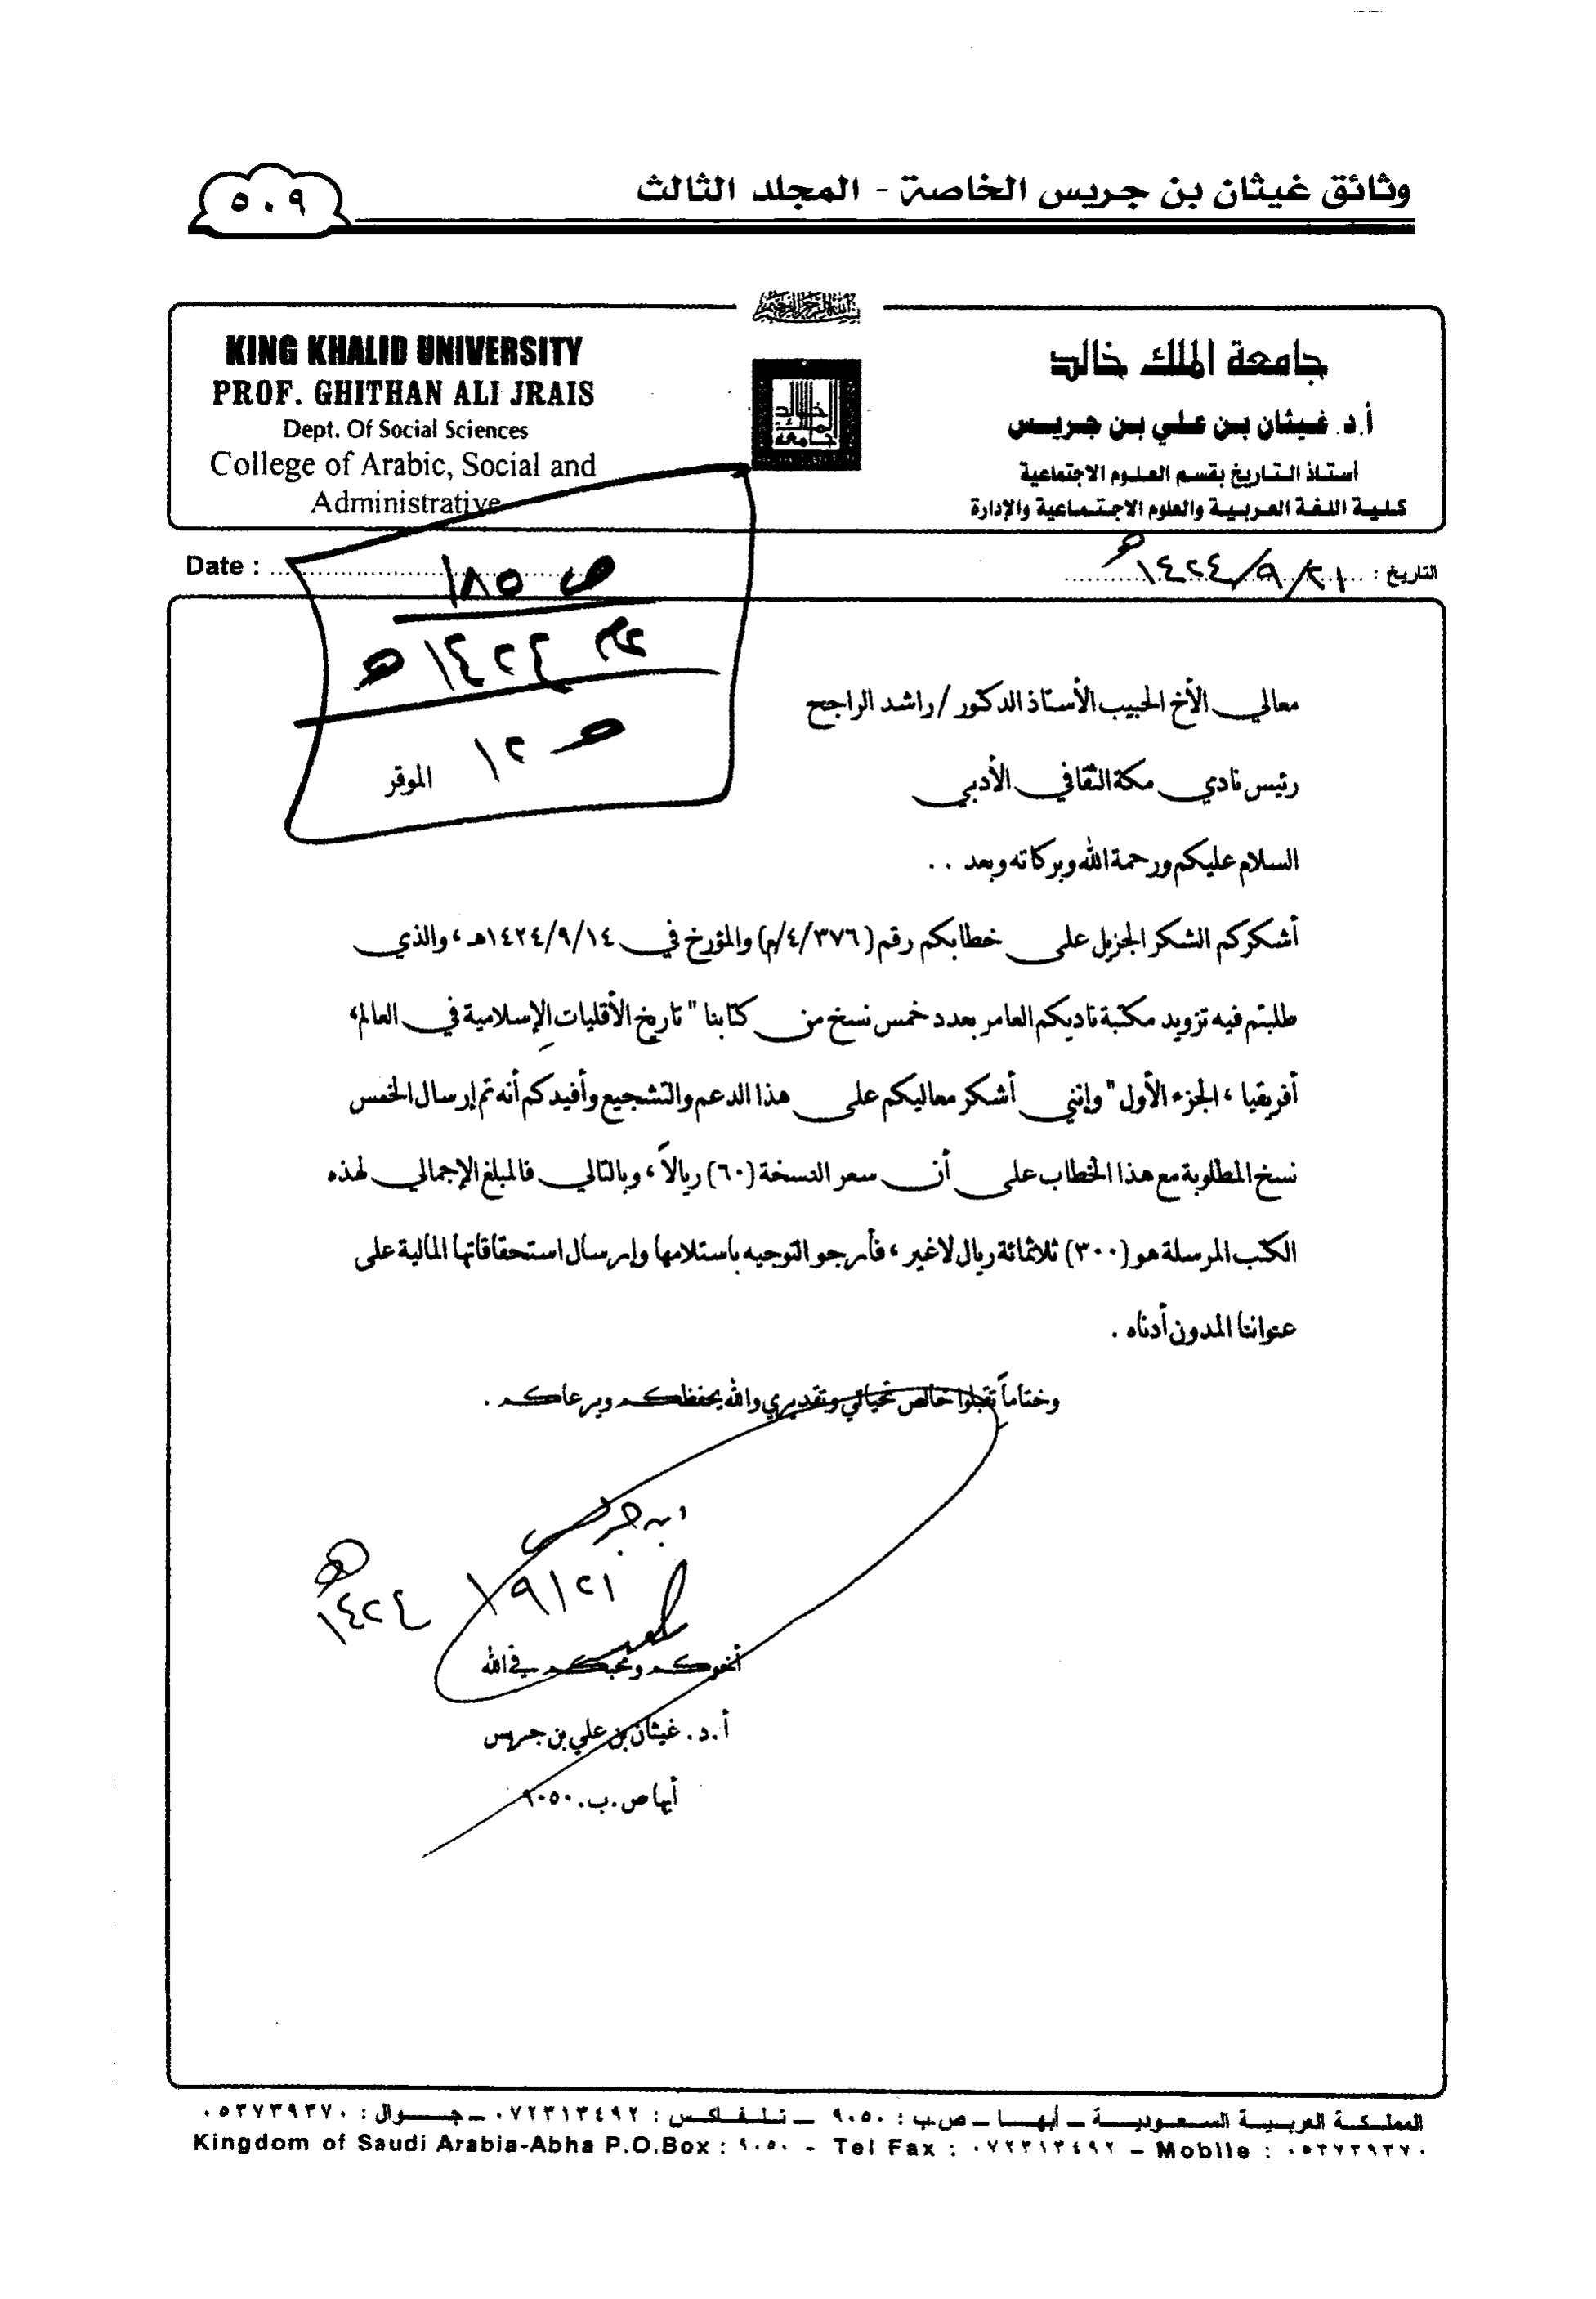 وثائق غيثان بن جريس الخاصة - المجلد الثالث
٥٠٩
بسم الله الرحمن الرحيم
جامعة الملك خالد
أ.د. غيثان بن علي بن جريس
أستاذ التاريخ بقسم العلوم الاجتماعية
كلية اللغة العربية والعلوم الاجتماعية والإدارة
KING KHALID UNIVERSITY
PROF. GHITHAN ALI JRAIS
Dept. Of Social Sciences
College of Arabic, Social and
Administrative
التاريخ : ٢١/٩/١٤٢٤هـ
Date :
ص ١٨٥
عام ١٤٢٤هـ
١٢
معالي الأخ الحبيب الأستاذ الدكتور / راشد الراجح
رئيس نادي مكة الثقافي الأدبي الموقر
السلام عليكم ورحمة الله وبركاته وبعد . .
أشكركم الشكر الجزيل على خطابكم رقم (٤/٣٧٦/م) والمؤرخ في ١٤٢٤/٩/١٤هـ ، والذي
طلبتم فيه تزويد مكتبة ناديكم العامر بعدد خمس نسخ من كتابنا " تاريخ الأقليات الإسلامية في العالم،
أفريقيا ، الجزء الأول" وإنني أشكر معاليكم على هذا الدعم والتشجيع وأفيدكم أنه تم إرسال الخمس
نسخ المطلوبة مع هذا الخطاب على أن سعر النسخة (٦٠) ريالاً ، وبالتالي فالمبلغ الإجمالي لهذه
الكتب المرسلة هو (٣٠٠) ثلاثمائة ريال لاغير ، فأرجو التوجيه باستلامها وإرسال استحقاقاتها المالية على
عنواننا المدون أدناه .
وختاماً تقبلوا خالص تحياتي وتقديري والله يحفظكم ويرعاكم .
ابن جريس
٢١/٩/
١٤٢٤هـ
أخوكم ومحبكم في الله
أ.د. غيثان بن علي بن جريس
أبها ص.ب. ٩٠٥٠
المملكة العربية السعودية – أبها – ص.ب : ٩٠٥٠ – تلفاكس : ٠٧٢٣١٣٤٩٢ – جوال : ٠٥٣٧٣٩٣٧٠
Kingdom of Saudi Arabia-Abha P.O.Box : ٩٠٥٠ - Tel Fax : ٠٧٢٣١٣٤٩٢ – Mobile : ٠٥٣٧٣٩٣٧٠